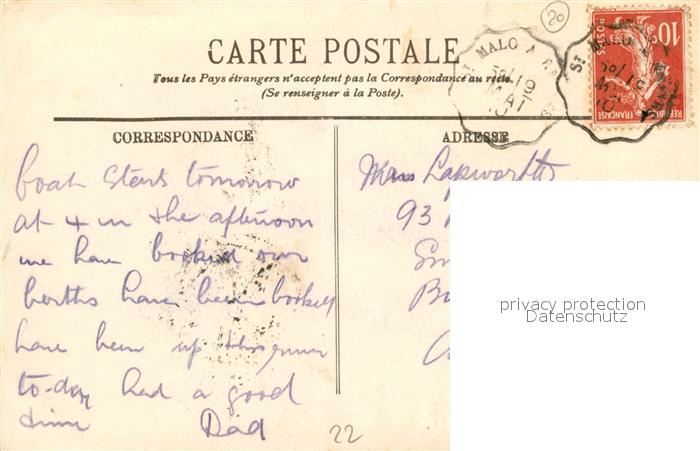 20
CARTE POSTALE
Tous les Pays étrangers n'acceptent pas la Correspondance au recto.
(Se renseigner à la Poste).
CORRESPONDANCE
ADRESSE
boat starts tomorrow
at 4 in the afternoon
we have booked our
berths have been booked
have been up
to-day had a good
time Dad
Lapworth
93
22
ST MALO A
10
POSTES
REPUBLIQUE FRANÇAISE
privacy protection
Datenschutz